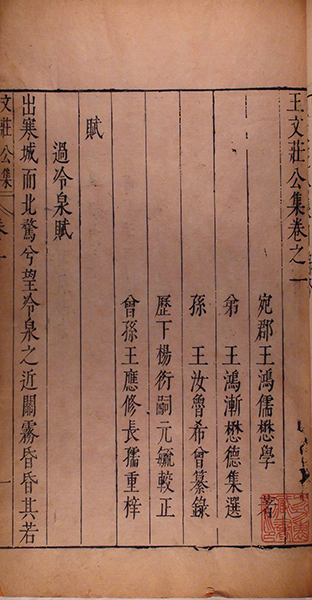 王文莊公集卷之一
宛郡王鴻儒懋學 著
弟 王鴻漸懋德集選
孫 王汝魯希曾纂錄
歷下楊衍嗣元毓較正
曾孫王應修長孺重梓
賦
過冷泉賦
出寒城而北騖兮望冷泉之近關霧昏昏其若
文莊公集 卷一 一